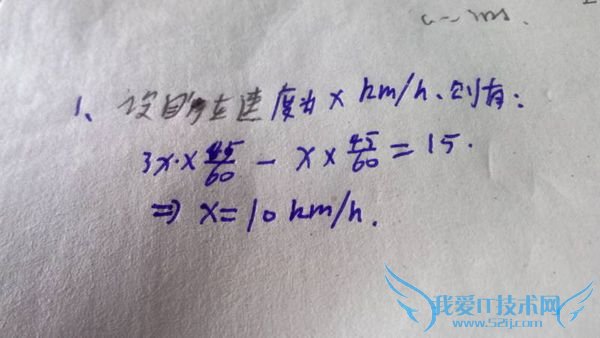 1、设自行车速度为 x km/h、则有：
3x·× 45/60 − x × 45/60 = 15.
⇒ x = 10 km/h.
我爱IT技术网
www.52ij.com